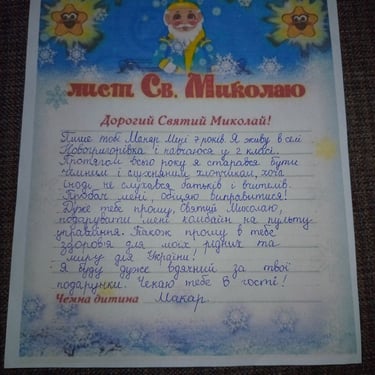 лист Св. Миколаю
Дорогий Святий Миколай!
Пише тобі Макар. Мені 7 років. Я живу в селі
Новогригорівка і навчаюся у 2 класі.
Протягом всього року я старався бути
чемним і слухняним хлопчиком, хоча
іноді не слухався батьків і вчителів.
Пробач мені, обіцяю виправитися!
Дуже тебе прошу, Святий Миколаю,
подарувати мені комбайн на пульту
управління. Також прошу в тебе
здоров'я для моїх рідних та
миру для України!
Я буду дуже вдячний за твої
подарунки. Чекаю тебе в гості!
Чемна дитина Макар